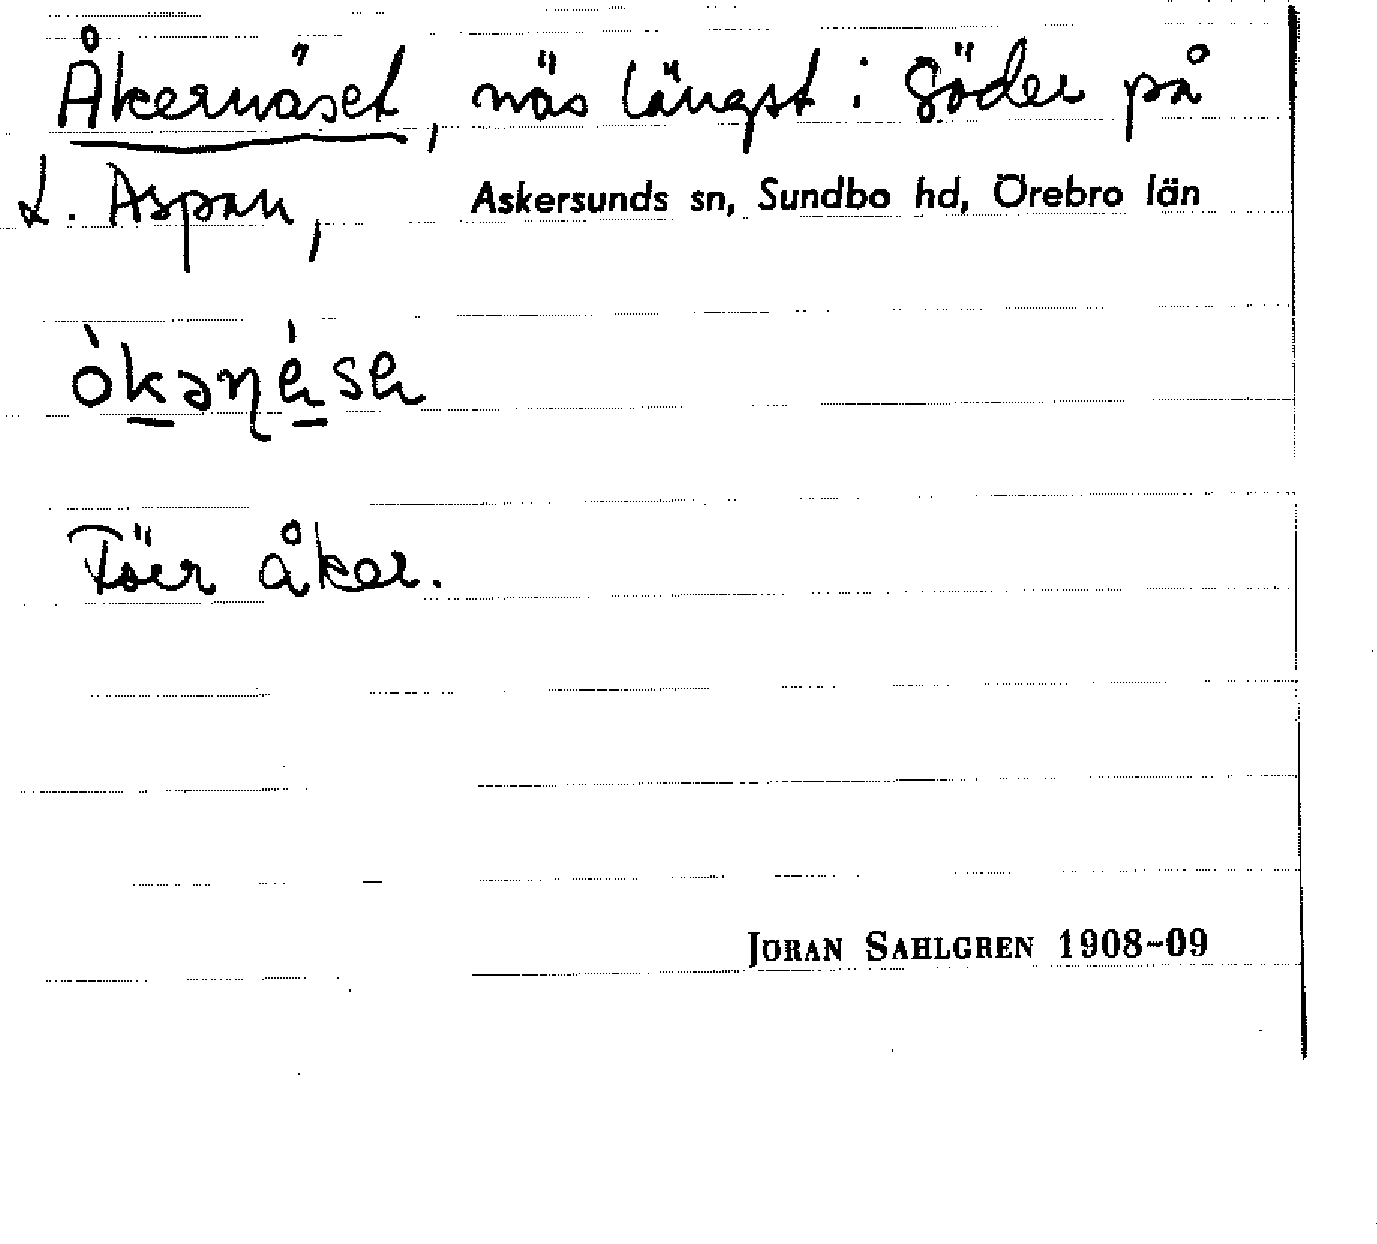 Åkernäset, näs längst i söder på
L. Aspan, Askersunds sn, Sundbo hd, Örebro län
Förr åker.
JORAN SAHLGREN 1908-09